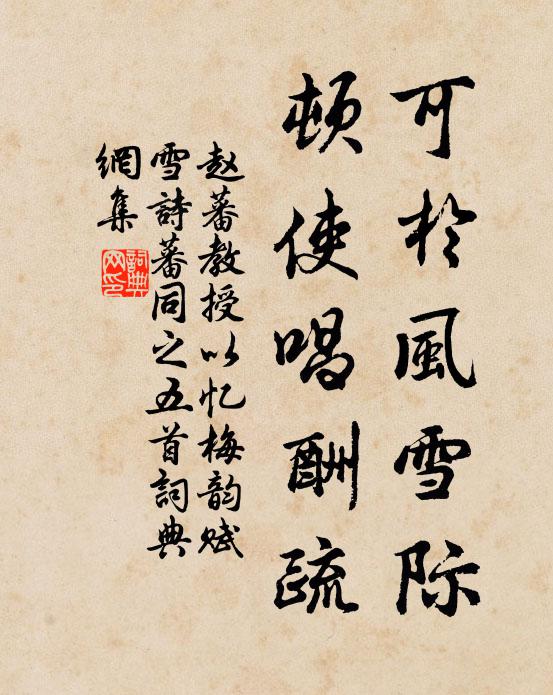 可於風雪际
頓使唱酬疏
赵蕃教授以忆梅韵赋
雪詩蕃同之五首詞典
網集
詞典
网印